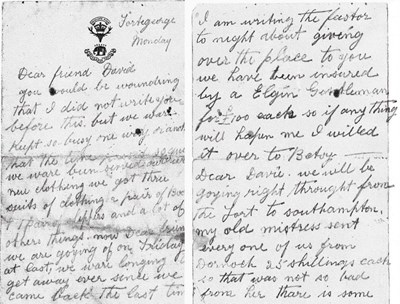 Fortegeorge
Monday
Dear friend David
you would be woundring
that I did not write you
before this. but we ware
kept so busy one way or anoth
that the time
we ware been served
new clothing we got three
suits of clothing 2 pairs of Boo
1 pair slippers and a lot of
others things. now Dear frien
we are goying of on Friday
at last; we ware longing
get away ever since we
came back the last tim
I am writing the factor
to night about geving
over the place to you
we have been insured
by a Elgin Gentleman
for £100 each so if any thing
will hapen me I willed
it over to Batsy
Dear Davie. we will be
goying right throught from
the Fort to southampton.
my old mistress sent
every one of us from
Dornoch 25 shelings cash
so that was not so bad
from her thare is some